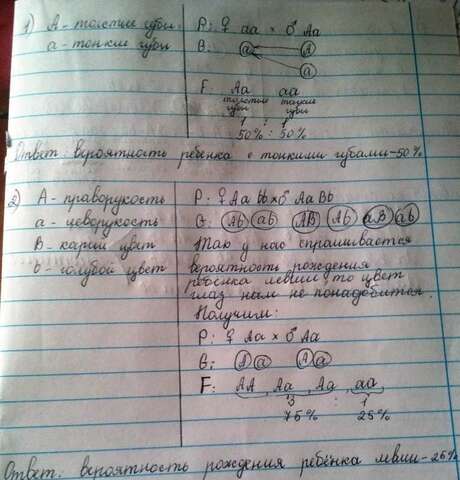 1) А - толстые губы
а - тонкие губы
Р: ♀ аа × ♂ Аа
а А
а
F: Аа аа
толстые губы тонкие губы
1 : 1
50% : 50%
Ответ: вероятность ребенка с тонкими губами - 50%
2) А - праворукость
а - леворукость
В - карий цвет
b - голубой цвет
Р: ♀ Аа bb × ♂ Аа Вb
G: Аb аb АВ Аb аВ аb
Так у нас спрашивается
вероятность рождения
ребенка левши, то цвет
глаз нам не понадобится.
Получим:
Р: ♀ Аа × ♂ Аа
G: А а А а
F: АА, Аа, Аа, аа
3 : 1
75% 25%
Ответ: вероятность рождения ребёнка левши - 25%